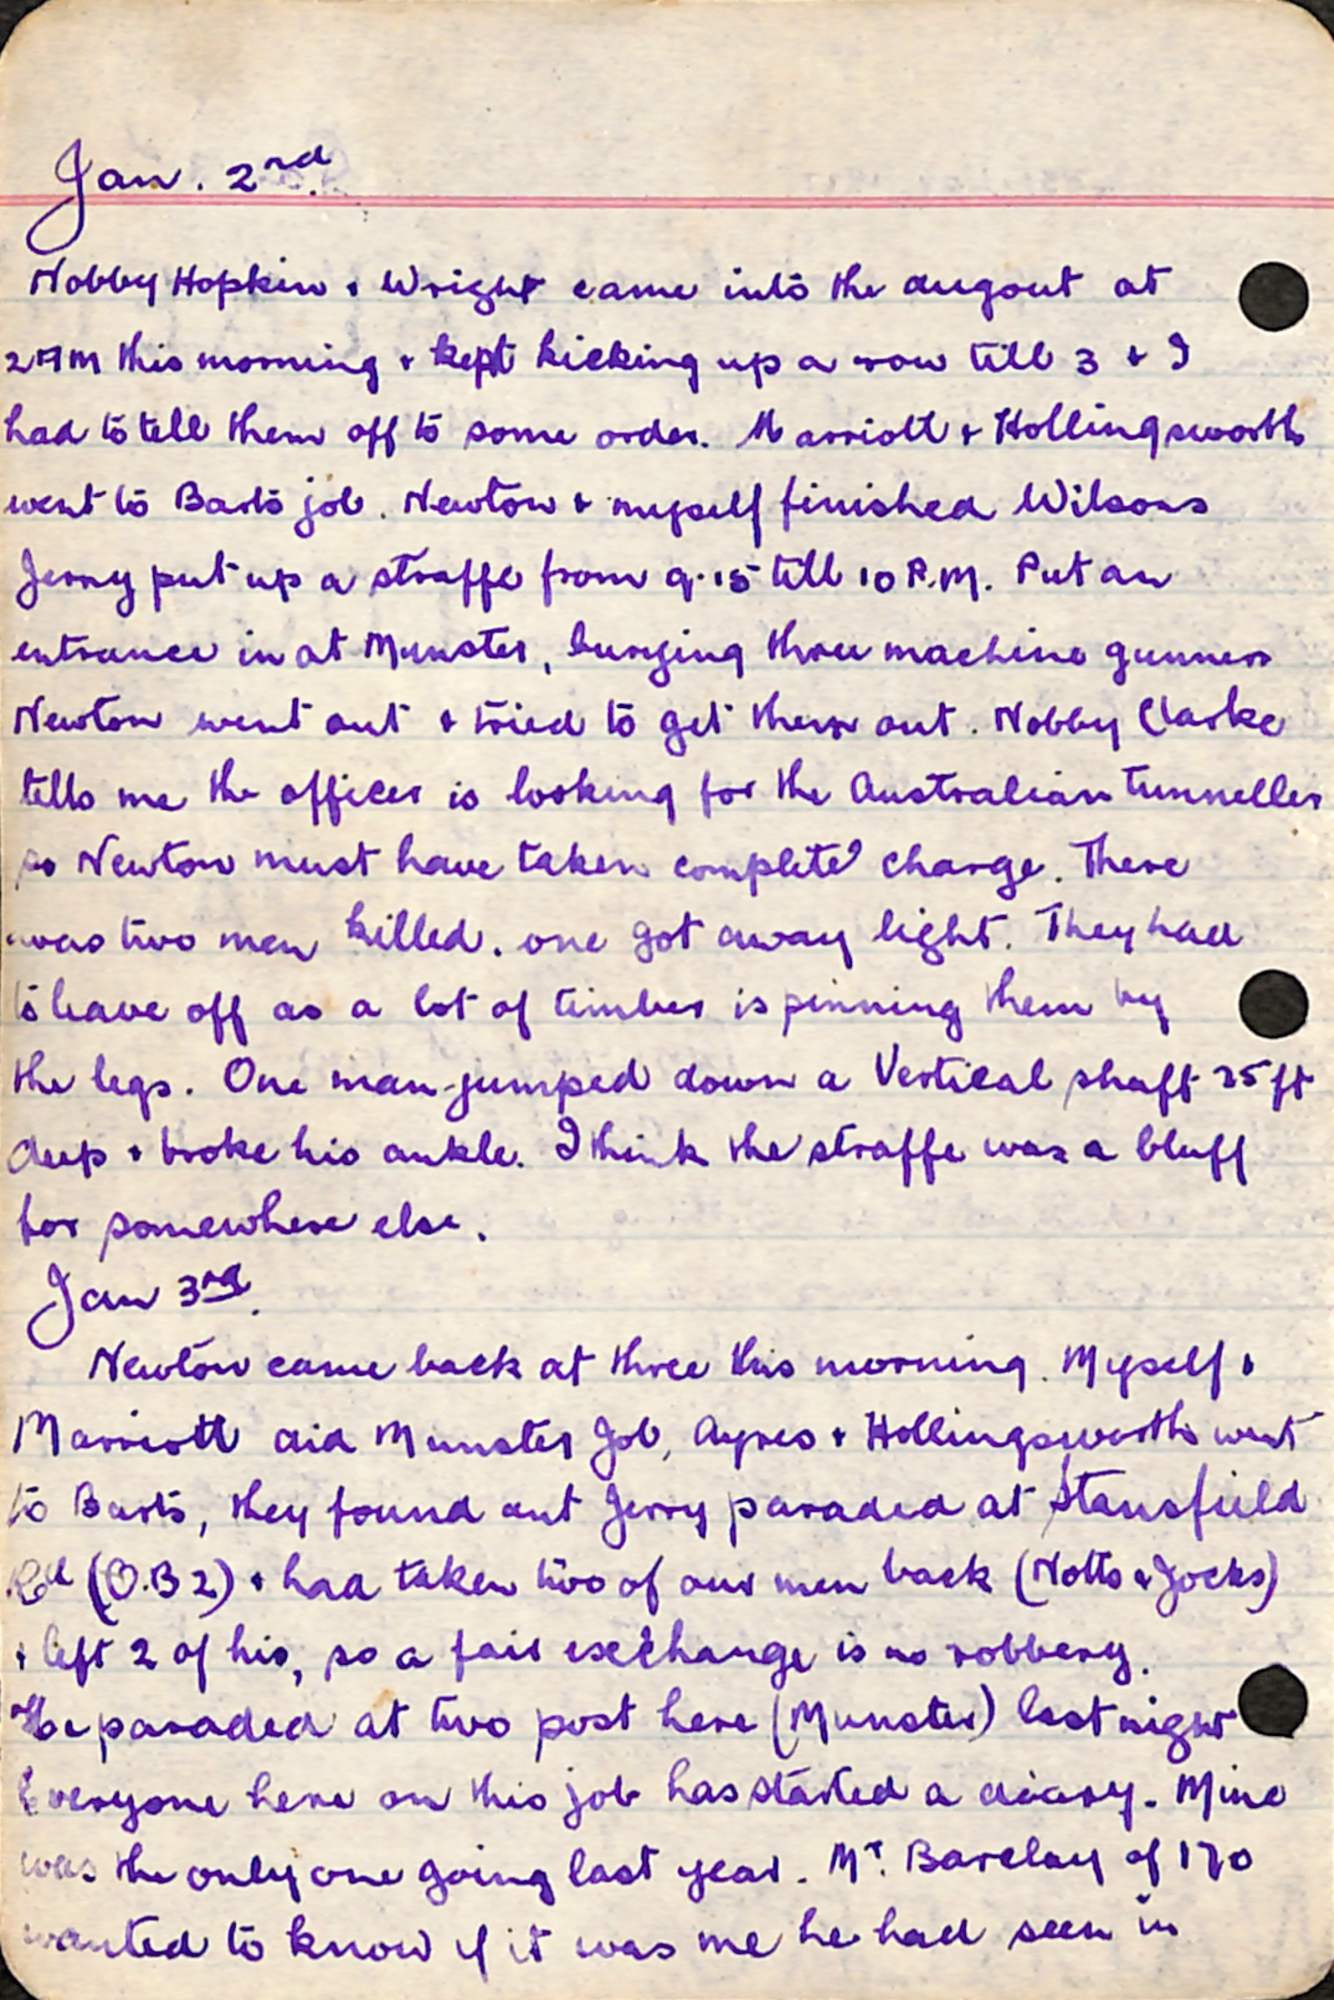 Jan. 2nd.
Nobby Hopkin & Wright came into the dugout at
2 AM this morning & kept kicking up a row till 3 & I
had to tell them off to some order. Marriott & Hollingsworth
went to Barts job. Newton & myself finished Wilsons
Jerry put up a straffe from 9.15 till 10 P.M. Put an
entrance in at Munster, burying three machine gunners
Newton went out & tried to get them out. Nobby Clarke
tells me the officer is looking for the Australian tunneller
so Newton must have taken complete charge. There
was two men killed. one got away light. They had
to leave off as a lot of timber is pinning them by
the legs. One man jumped down a Vertical shaft 25 ft
deep & broke his ankle. I think the straffe was a bluff
for somewhere else.
Jan 3rd.
Newton came back at three this morning. Myself &
Marriott did Munster Job, Ayres & Hollingsworth went
to Barts, they found out Jerry paraded at Stansfield
Rd (O.B 2) & had taken two of our men back (Notts & Jocks)
& left 2 of his, so a fair exchange is no robbery.
He paraded at two post here (Munster) last night
Everyone here on this job has started a diary. Mine
was the only one going last year. Mr. Barclay of 170
wanted to know if it was me he had seen in